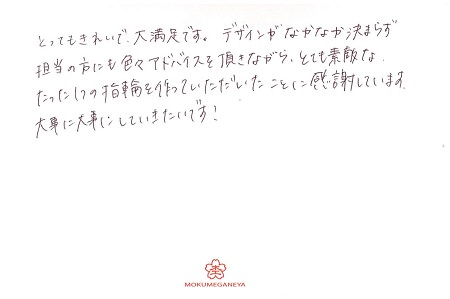 とってもきれいで、大満足です。デザインがなかなか決まらず
担当の方にも色々アドバイスを頂きながら、とても素敵な
たった1つの指輪を作っていただいたことに感謝しています。
大事に大事にしていきたいです!
杢
MOKUMEGANEYA